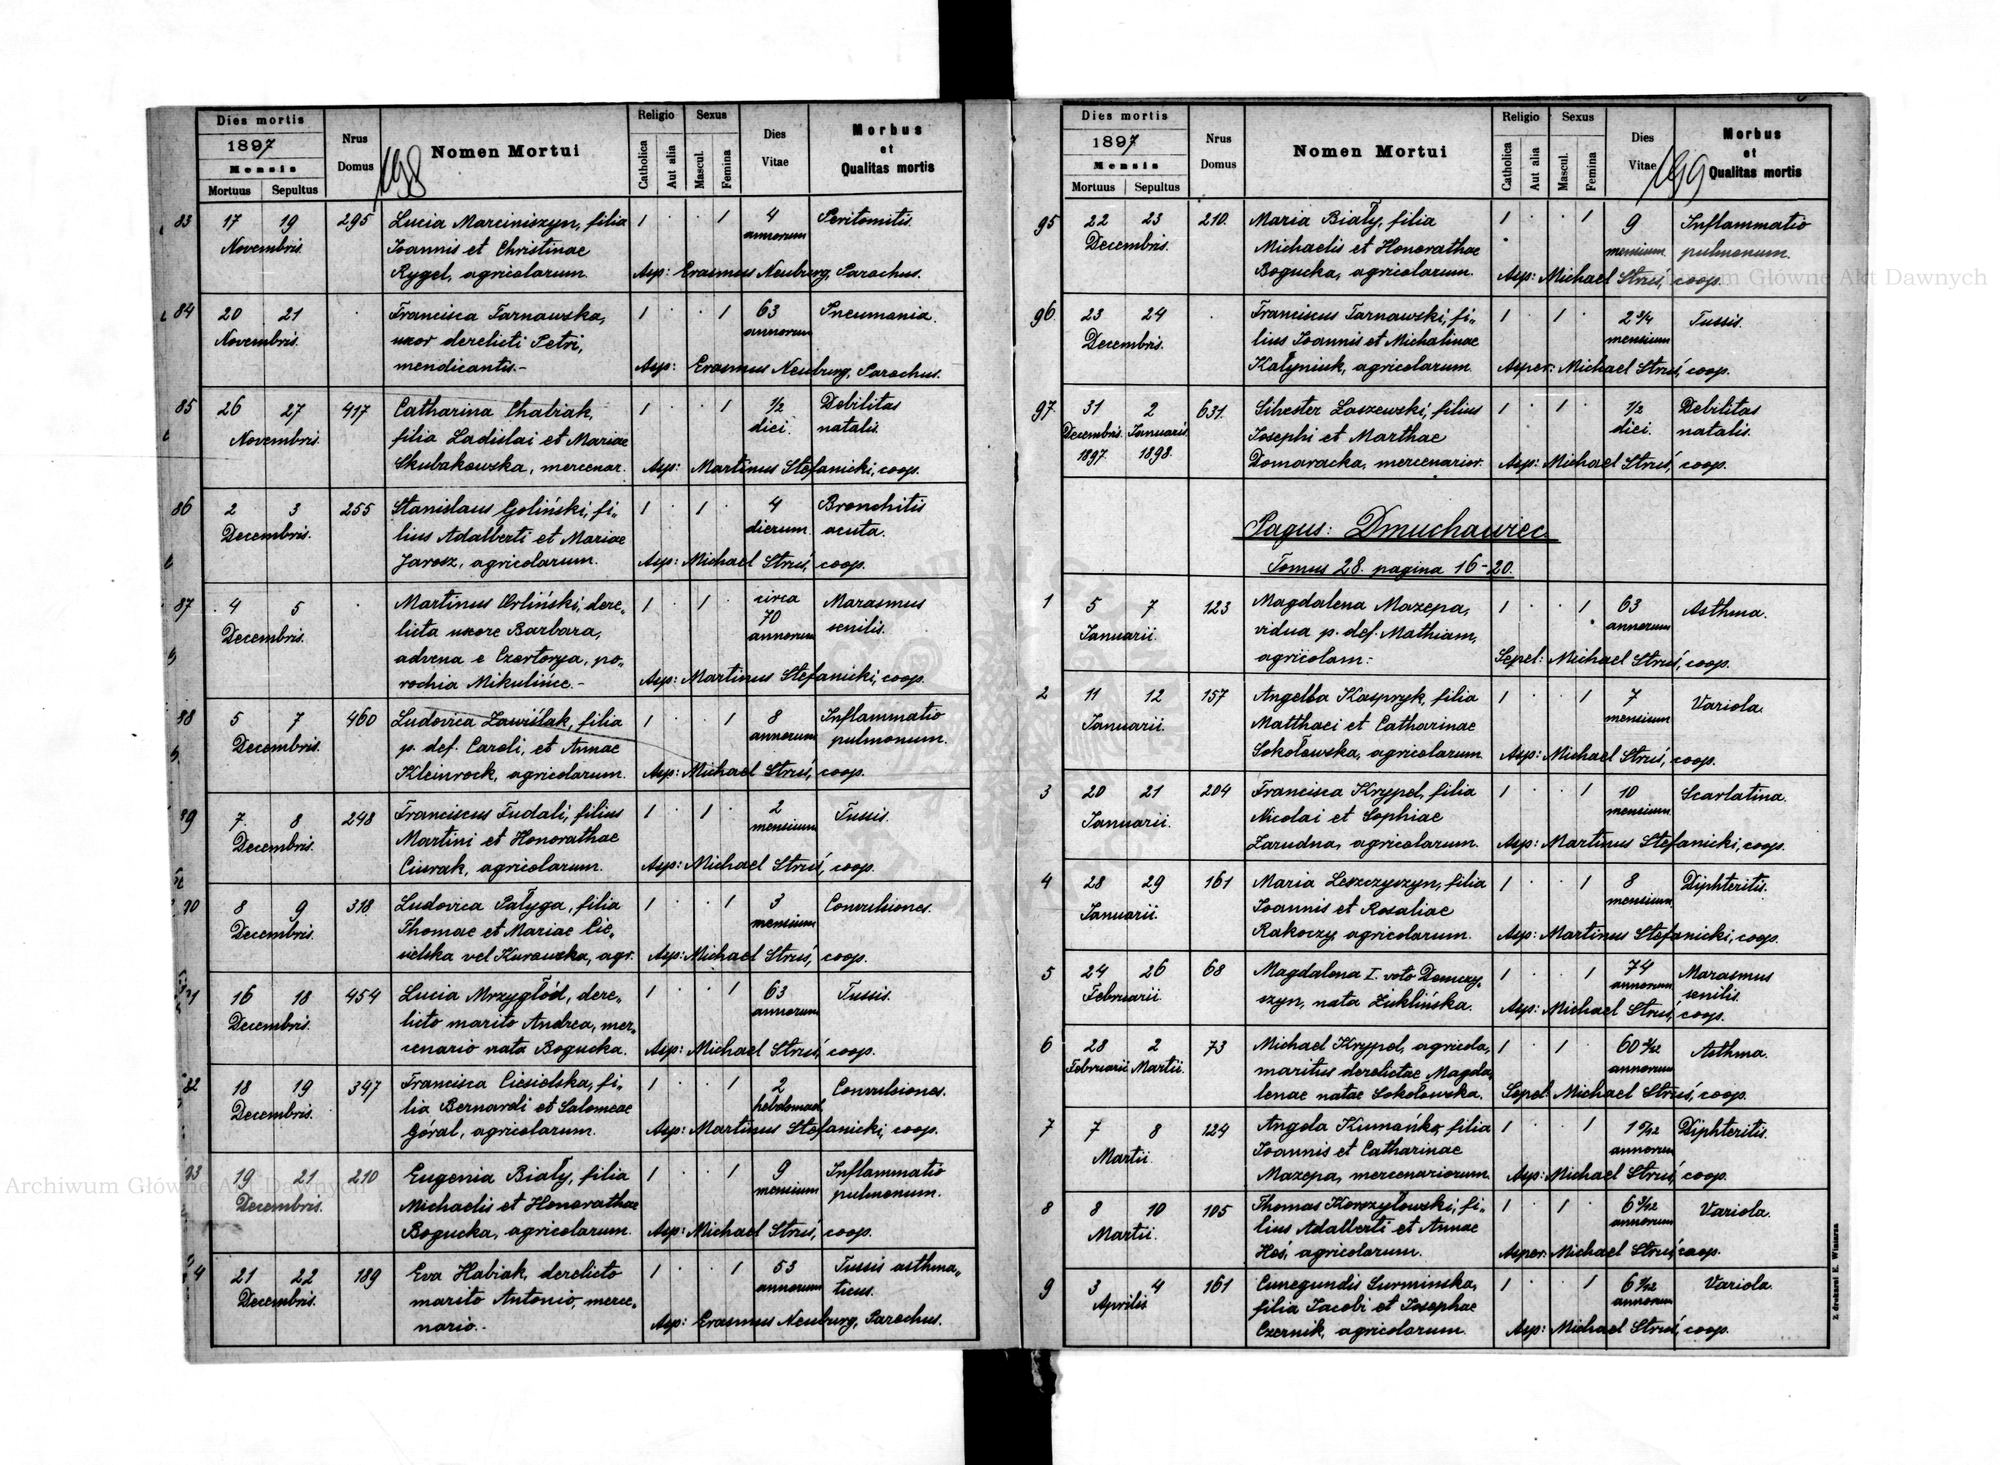 Dies mortis
1897
Mensis
Mortuus Sepultus
Nrus Domus
198
Nomen Mortui
Religio
Catholica
Aut alia
Sexus
Mascul.
Femina
Dies Vitae
Morbus et Qualitas mortis
83 17 19 295 Lucia Marciniszyn, filia 1 · · 1 4 Peritonitis.
Novembris. Ioannis et Christinae annorum
Rygel, agricolarum. Asp: Erasmus Neuburg, Parochus.
84 20 21 · Francisca Tarnawska, 1 · · 1 63 Pneumonia.
Novembris. uxor derelicti Petri, annorum
mendicantis.- Asp: Erasmus Neuburg, Parochus.
85 26 27 417 Catharina Chabiak, 1 · · 1 1/2 Debilitas
Novembris. filia Ladislai et Mariae diei. natalis.
Skubakowska, mercenar. Asp: Martinus Stefanicki, coop.
86 2 3 255 Stanislaus Goliński, fi„ 1 · 1 · 4 Bronchitis
Decembris. lius Adalberti et Mariae dierum. acuta.
Jarosz, agricolarum. Asp: Michael Struś, coop.
87 4 5 · Martinus Orliński, dere„ 1 · 1 · circa Marasmus
70
Decembris. licta uxore Barbara, annorum senilis.
advena e Czartorya, pa„
rochia Mikulińce.- Asp: Martinus Stefanicki, coop.
88 5 7 460 Ludovica Zawiślak, filia 1 · · 1 8 Inflammatio
Decembris. p. def. Caroli, et Annae annorum pulmonum.
Kleinrock, agricolarum. Asp: Michael Struś, coop.
89 7 8 248 Franciscus Fudali, filius 1 · 1 · 2 Tussis.
Decembris. Martini et Honorathae mensium
Ciurak, agricolarum. Asp: Michael Struś, coop.
90 8 9 318 Ludovica Pałyga, filia 1 · · 1 3 Convulsiones.
Decembris. Thomae et Mariae Cie„ mensium
sielska vel Kurowska, agr. Asp: Michael Struś, coop.
91 16 18 454 Lucia Mrzygłód, dere„ 1 · · 1 63 Tussis.
Decembris. licto marito Andrea, mer„ annorum
cenario nata Bogucka. Asp: Michael Struś, coop.
92 18 19 347 Francisca Ciesielska, fi„ 1 · · 1 2 Convulsiones.
Decembris. lia Bernardi et Salomeae hebdomad.
Góral, agricolarum. Asp: Martinus Stefanicki, coop.
93 19 21 210 Eugenia Biały, filia 1 · · 1 9 Inflammatio
Decembris. Michaelis et Honorathae mensium pulmonum.
Bogucka, agricolarum. Asp: Michael Struś, coop.
94 21 22 189 Eva Habiak, derelicto 1 · · 1 53 Tussis asthma„
Decembris. marito Antonio, merce„ annorum ticus.
nario.- Asp: Erasmus Neuburg, Parochus.
Dies mortis
1897
Mensis
Mortuus Sepultus
Nrus Domus
Nomen Mortui
Religio
Catholica
Aut alia
Sexus
Mascul.
Femina
Dies Vitae
199
Morbus et Qualitas mortis
95 22 23 210. Maria Biały, filia 1 · · 1 9 Inflammatio
Decembris. Michaelis et Honorathae mensium pulmonum.
Bogucka, agricolarum. Asp: Michael Struś, coop.
96. 23 24 · Franciscus Tarnawski, fi„ 1 · 1 · 2 3/4 Tussis.
Decembris. lius Ioannis et Michalinae mensium
Kałyniuk, agricolarum. Asper: Michael Struś, coop.
97. 31 2 631. Silvester Laszewski, filius 1 · 1 · 1/2 Debilitas
Decembris. Ianuarii Iosephi et Marthae diei. natalis.
1897. 1898. Domaracka, mercenarior. Asp: Michael Struś, coop.
Pagus: Dmuchawiec.
Tomus 28. pagina 16-20.
1 5 7 123 Magdalena Mazepa, 1 · · 1 63 Asthma.
Ianuarii. vidua p. def. Mathiam, annorum
agricolam.- Sepel: Michael Struś, coop.
2 11 12 157 Angella Kasprzyk, filia 1 · · 1 7 Variola.
Ianuarii. Matthaei et Catharinae mensium
Sokołowska, agricolarum. Asp: Michael Struś, coop.
3 20 21 204 Francisca Krypel, filia 1 · · 1 10 Scarlatina.
Ianuarii. Nicolai et Sophiae mensium
Zarudna, agricolarum. Asp: Martinus Stefanicki, coop.
4 28 29 161 Maria Leszczyszyn, filia 1 · · 1 8 Diphteritis.
Ianuarii. Ioannis et Rosaliae mensium
Rakoczy, agricolarum. Asp: Martinus Stefanicki, coop.
5 24 26 68 Magdalena I. voto Demczy„ 1 · · 1 74 Marasmus
Februarii. szyn, nata Żuklińska. annorum senilis.
Asp: Michael Struś, coop.
6 28 2 73 Michael Krypel, agricola, 1 · 1 · 60 Asthma.
Februarii Martii. maritus derelictae Magda„ annorum
lenae natae Sokołowska. Sepel: Michael Struś, coop.
7 7 8 124 Angela filia 1 · · 1 1 Diphteritis.
Martii. Ioannis et Catharinae annorum
Mazepa, mercenariorum. Asp: Michael Struś, coop.
8 8 10 105 Thomas Korszyłowski, fi„ 1 · 1 · 6 Variola.
Martii. lius Adalberti et Annae annorum
Hoś, agricolarum. Asper: Michael Struś, coop.
9 3 4 161 Cunegundis Surminska, 1 · · 1 6 Variola.
Aprilis filia Iacobi et Iosephae annorum
Czernik, agricolarum. Asp: Michael Struś, coop.
Z drukarni E. Wintarza
Archiwum Główne Akt Dawnych
Archiwum Główne Akt Dawnych